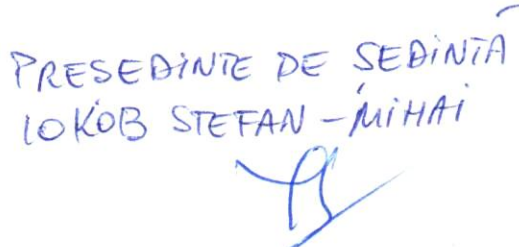 PRESEDINTE DE SEDINTĂ
IOKOB STEFAN-MIHAI